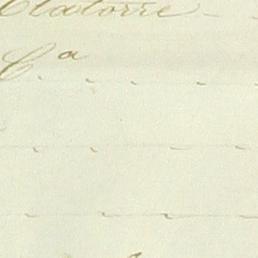 Olatorre
C.ª